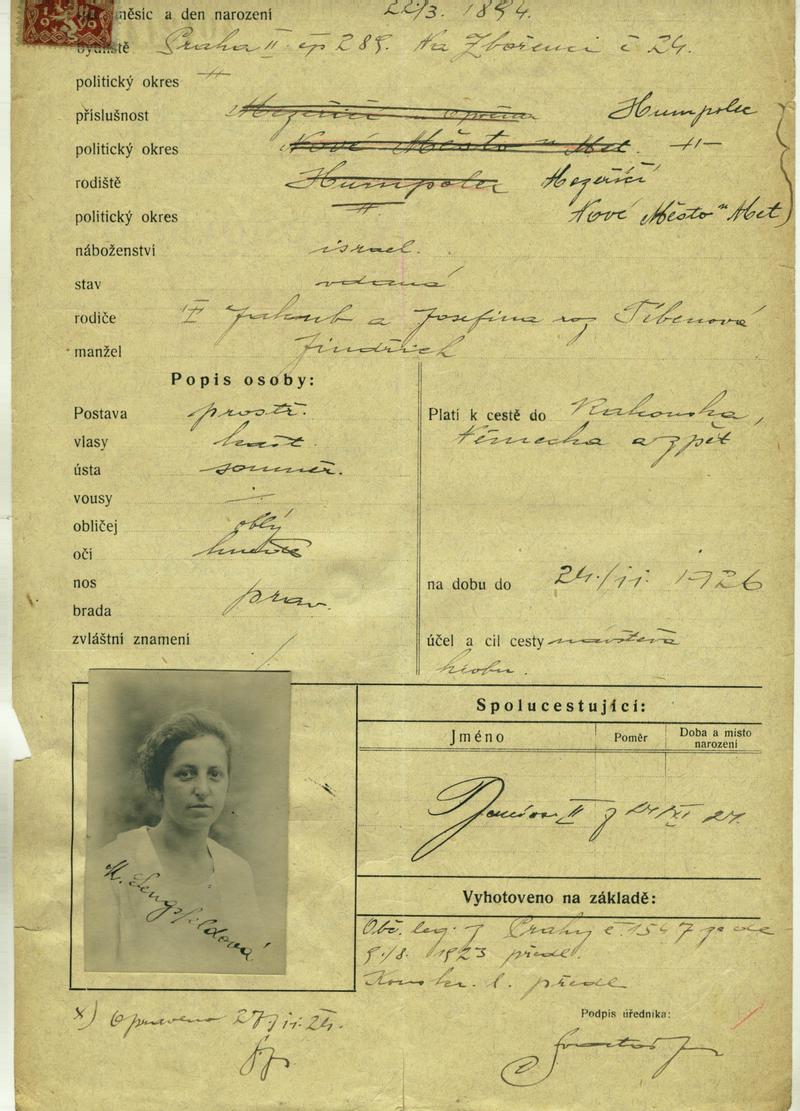 měsíc a den narození 22/3. 1894.
bydliště Praha II čp 289. Na Zbořenci č 24.
politický okres -"-
příslušnost Humpolec
politický okres Nové Město n Met. -"-
rodiště Humpolec Meziříčí
politický okres -"- Nové Město n Met
náboženství israel.
stav vdaná
rodiče Jakub a Josefina roz
manžel Jindřich
Popis osoby:
Postava prostř.
vlasy kašt
ústa souměr.
vousy
obličej oblý
oči hnědé
nos
brada prav.
zvláštní znamení /
Platí k cestě do Rakouska,
Německa a zpět
na dobu do 24./11. 1926
účel a cíl cesty návštěva
hrobu.
Spolucestující:
Jméno Poměr Doba a místo narození
II z XI 24.
M. Lengsfeldová
Vyhotoveno na základě:
Obč. leg. z Prahy č. 1547 ze dne
9./8. 1923 předl.
Konskr. l. předl
x) Opraveno 27/11. 24.
Podpis úředníka: